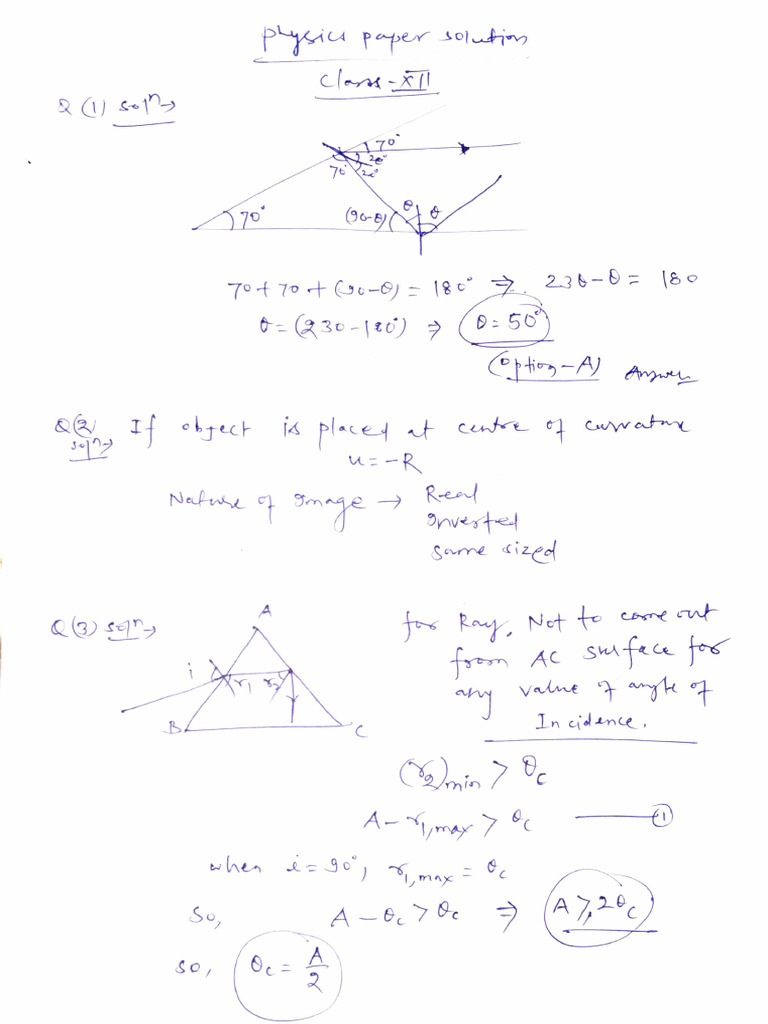 Physics paper solution
Class-XII
Q (1) solⁿ→
70°
20°
70°
20°
70°
(90-θ)
θ
θ
70+70+(90-θ) = 180° ⇒ 230-θ = 180
θ = (230-180°) ⇒ θ = 50°
(option-A) Answer
Q(2) solⁿ→ If object is placed at centre of curvature
u = -R
Nature of Image → Real
Inverted
same sized
Q (3) solⁿ→
A
i
r₁
r₂
B
C
for Ray, Not to come out
from AC surface for
any value of angle of
Incidence.
(r₂)min > θc
A - r₁,max > θc ——— ①
when i = 90°, r₁,max = θc
So, A - θc > θc ⇒ A ⩾ 2θc
so, θc = A/2